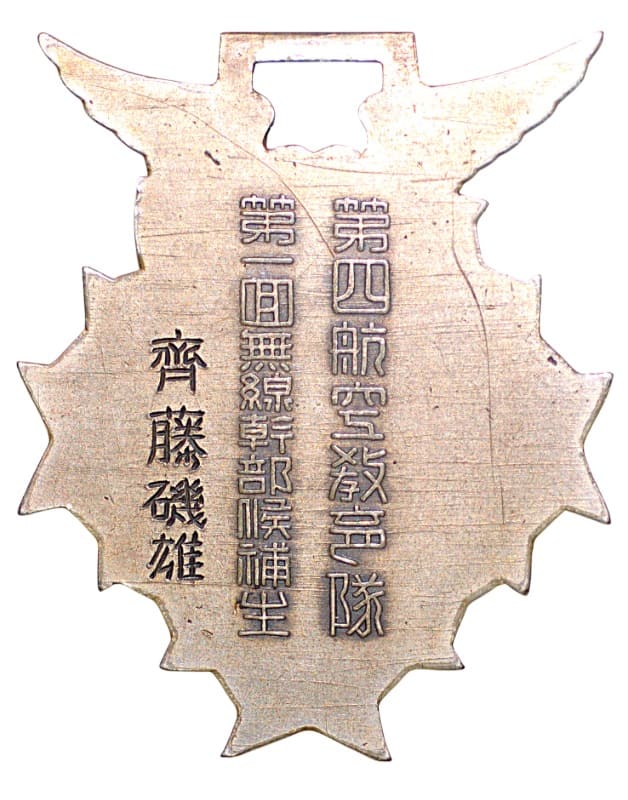 第四航空教育隊
第一回無線幹部候補生
齊藤磯雄